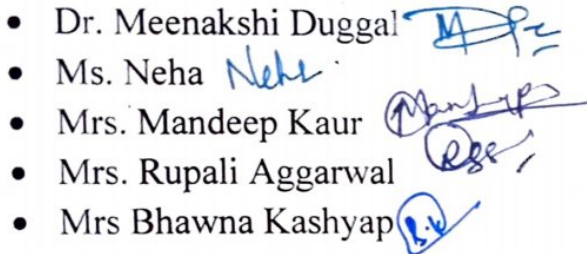 • Dr. Meenakshi Duggal
• Ms. Neha Neha
• Mrs. Mandeep Kaur Mandeep
• Mrs. Rupali Aggarwal
• Mrs Bhawna Kashyap B.K